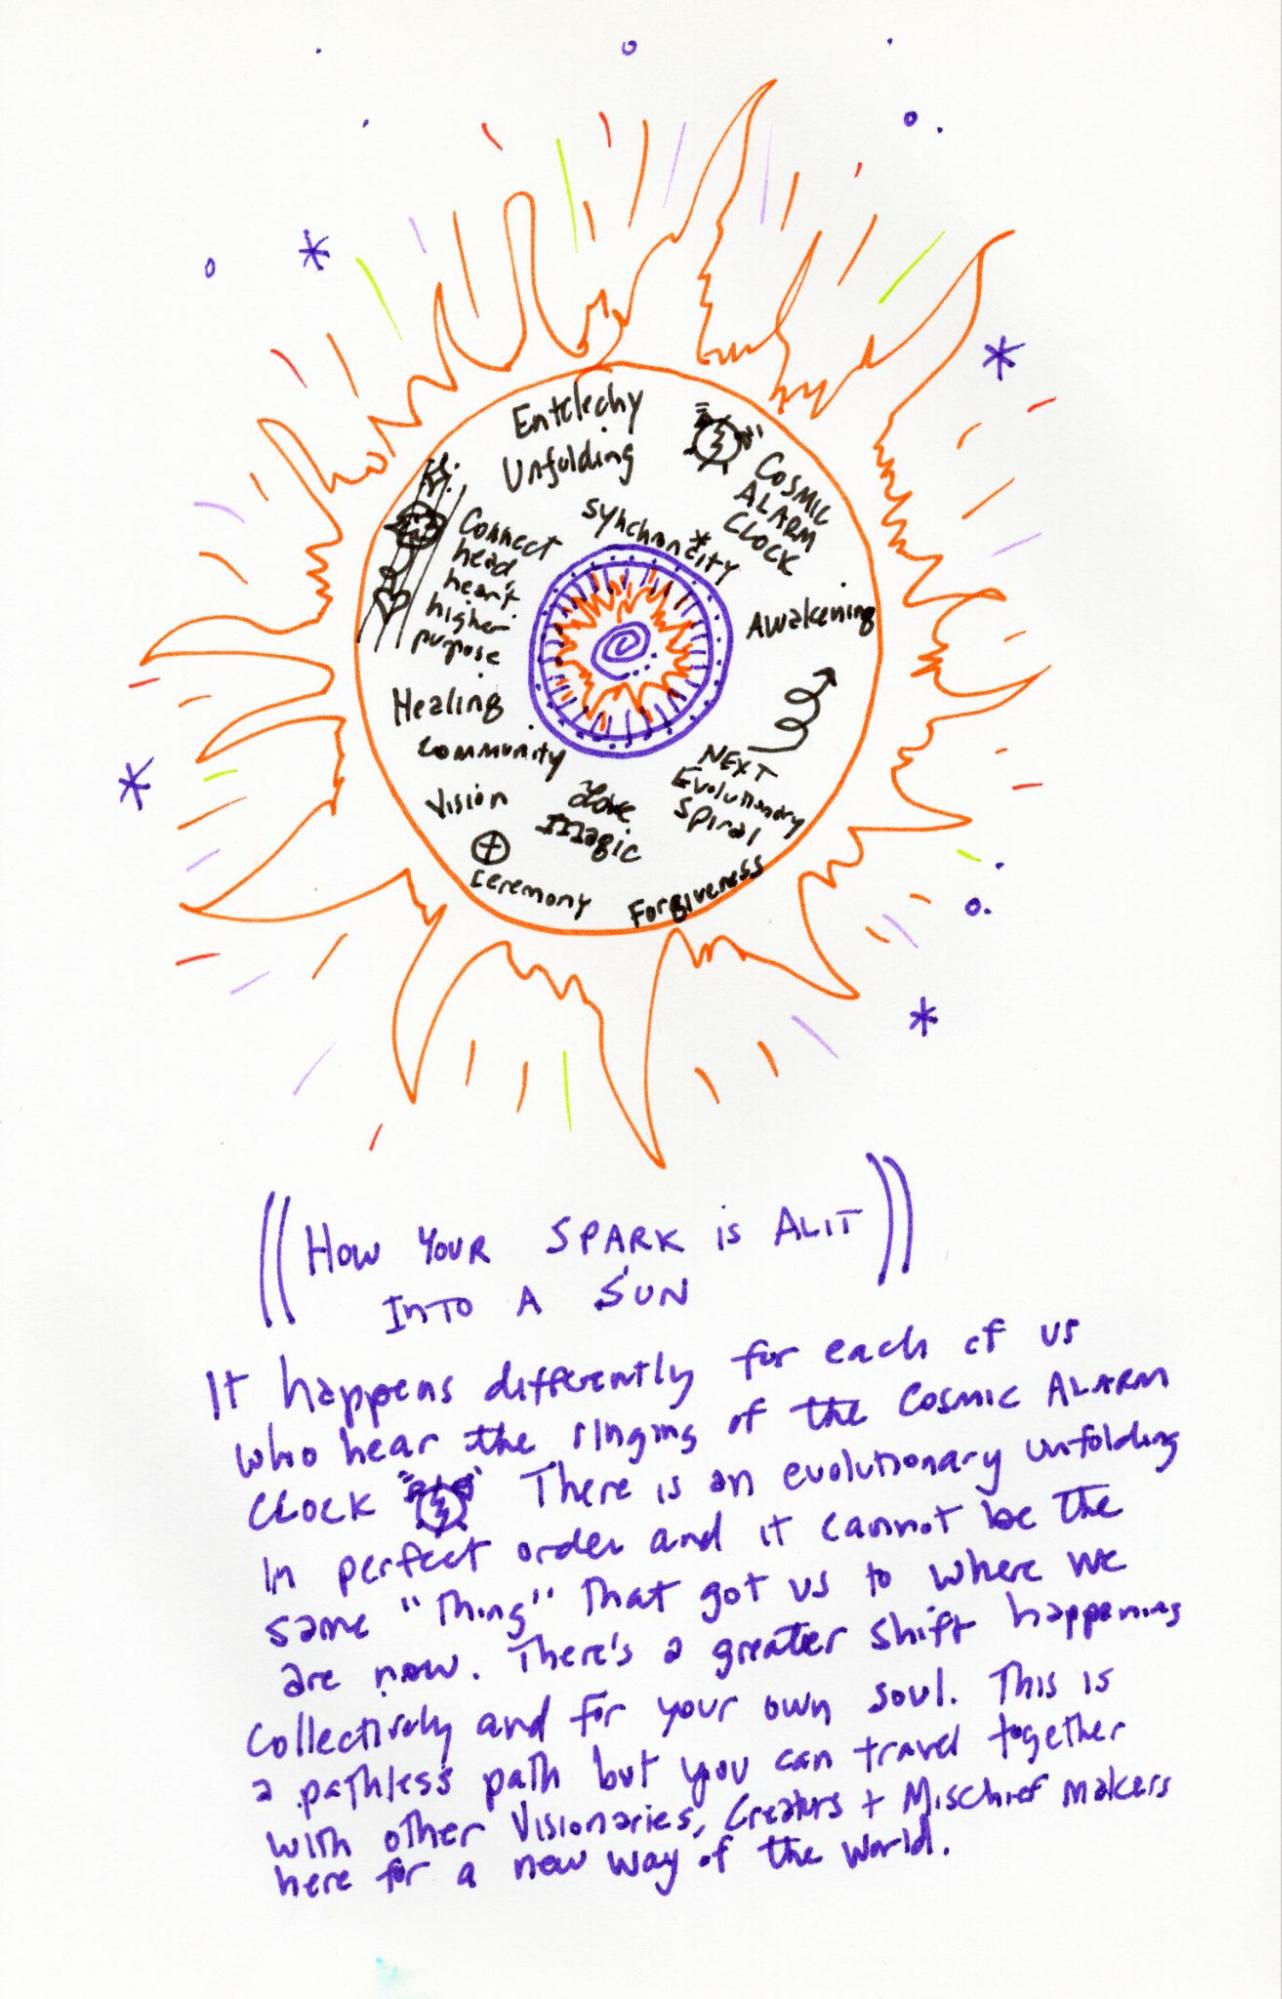 Entelechy
Unfolding
COSMIC
ALARM
CLOCK
synchroncity
Connect
head
heart
higher
purpose
Awakening
Healing
Community
NEXT
Evolutionary
Spiral
Vision
Love
Magic
Ceremony
Forgiveness
((HOW YOUR SPARK is ALIT))
INTO A SUN
It happens differently for each of us
who hear the ringing of the Cosmic ALARM
CLOCK There is an evolutionary unfolding
In perfect order and it cannot be the
same "Thing" That got us to where we
are now. There's a greater shift happening
Collectively and for your own soul. This is
a pathless path but you can travel together
with other Visionaries, Creators + Mischief makers
here for a new way of the world.